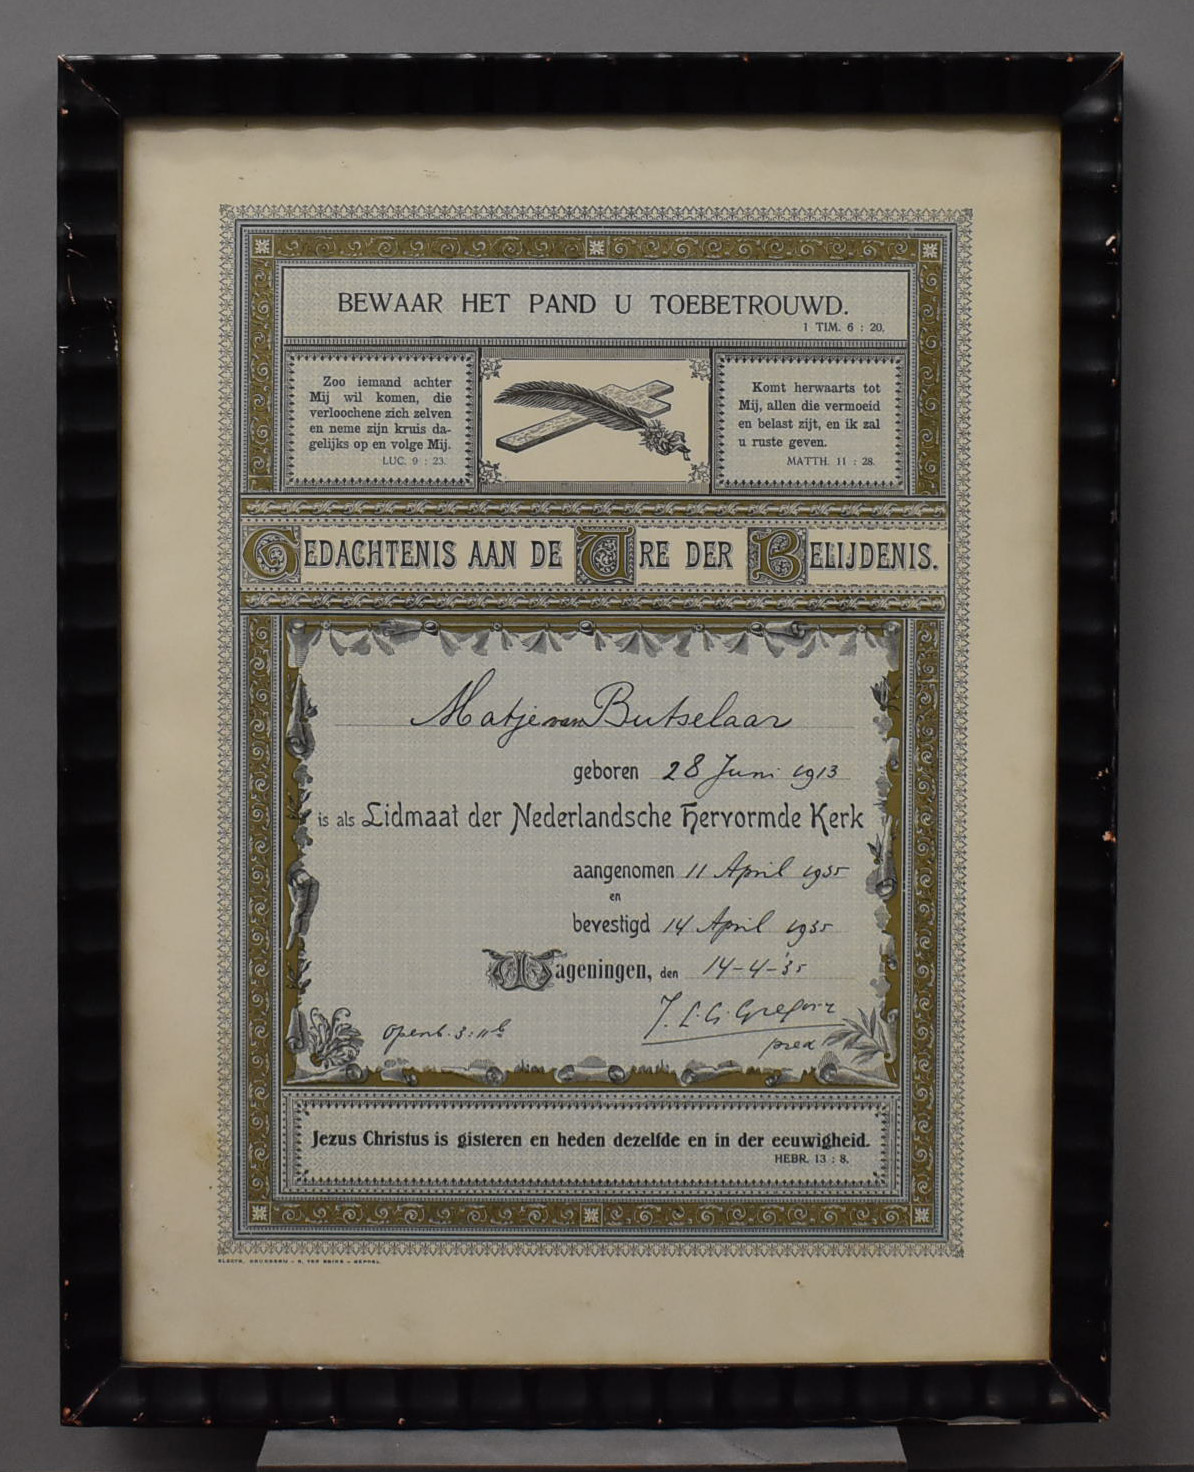 BEWAAR HET PAND U TOEBETROUWD.
1 TIM. 6 : 20.
Zoo iemand achter
Mij wil komen, die
verloochene zich zelven
en neme zijn kruis da-
gelijks op en volge Mij.
LUC. 9 : 23.
Komt herwaarts tot
Mij, allen die vermoeid
en belast zijt, en ik zal
u ruste geven.
MATTH. 11 : 28.
GEDACHTENIS AAN DE URE DER BELIJDENIS.
Matje van Butselaar
geboren 28 Juni 1913
is als Lidmaat der Nederlandsche Hervormde Kerk
aangenomen 11 April 1935
en
bevestigd 14 April 1935
Wageningen, den 14-4-'35
J. L. G. Gregory
pred
Openb. 3:11b
Jezus Christus is gisteren en heden dezelfde en in der eeuwigheid.
HEBR. 13 : 8.
ELECTR. DRUKKERIJ - H. TEN BRINK - MEPPEL